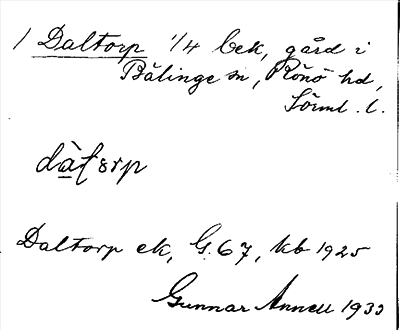 1 Daltorp 1/4 bek, gård i
Bälinge sn, Rönö hd,
Sörml. l.
dàltorp
Daltorp ek, G.67, kb 1925
Gunnar Annell 1933